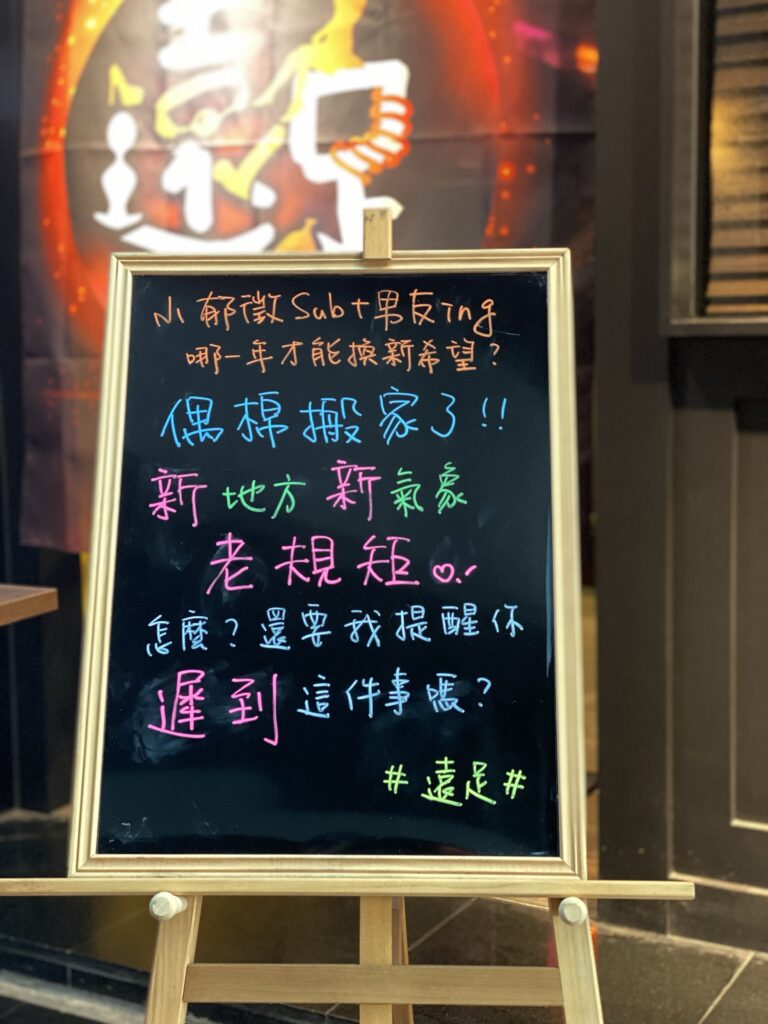 遠足
小郁徵Sub+男友ing
哪一年才能換新希望？
偶棉搬家了!!
新地方新氣象
老規矩♡.ˊ
怎麼？還要我提醒你
遲到這件事嗎？
#遠足#